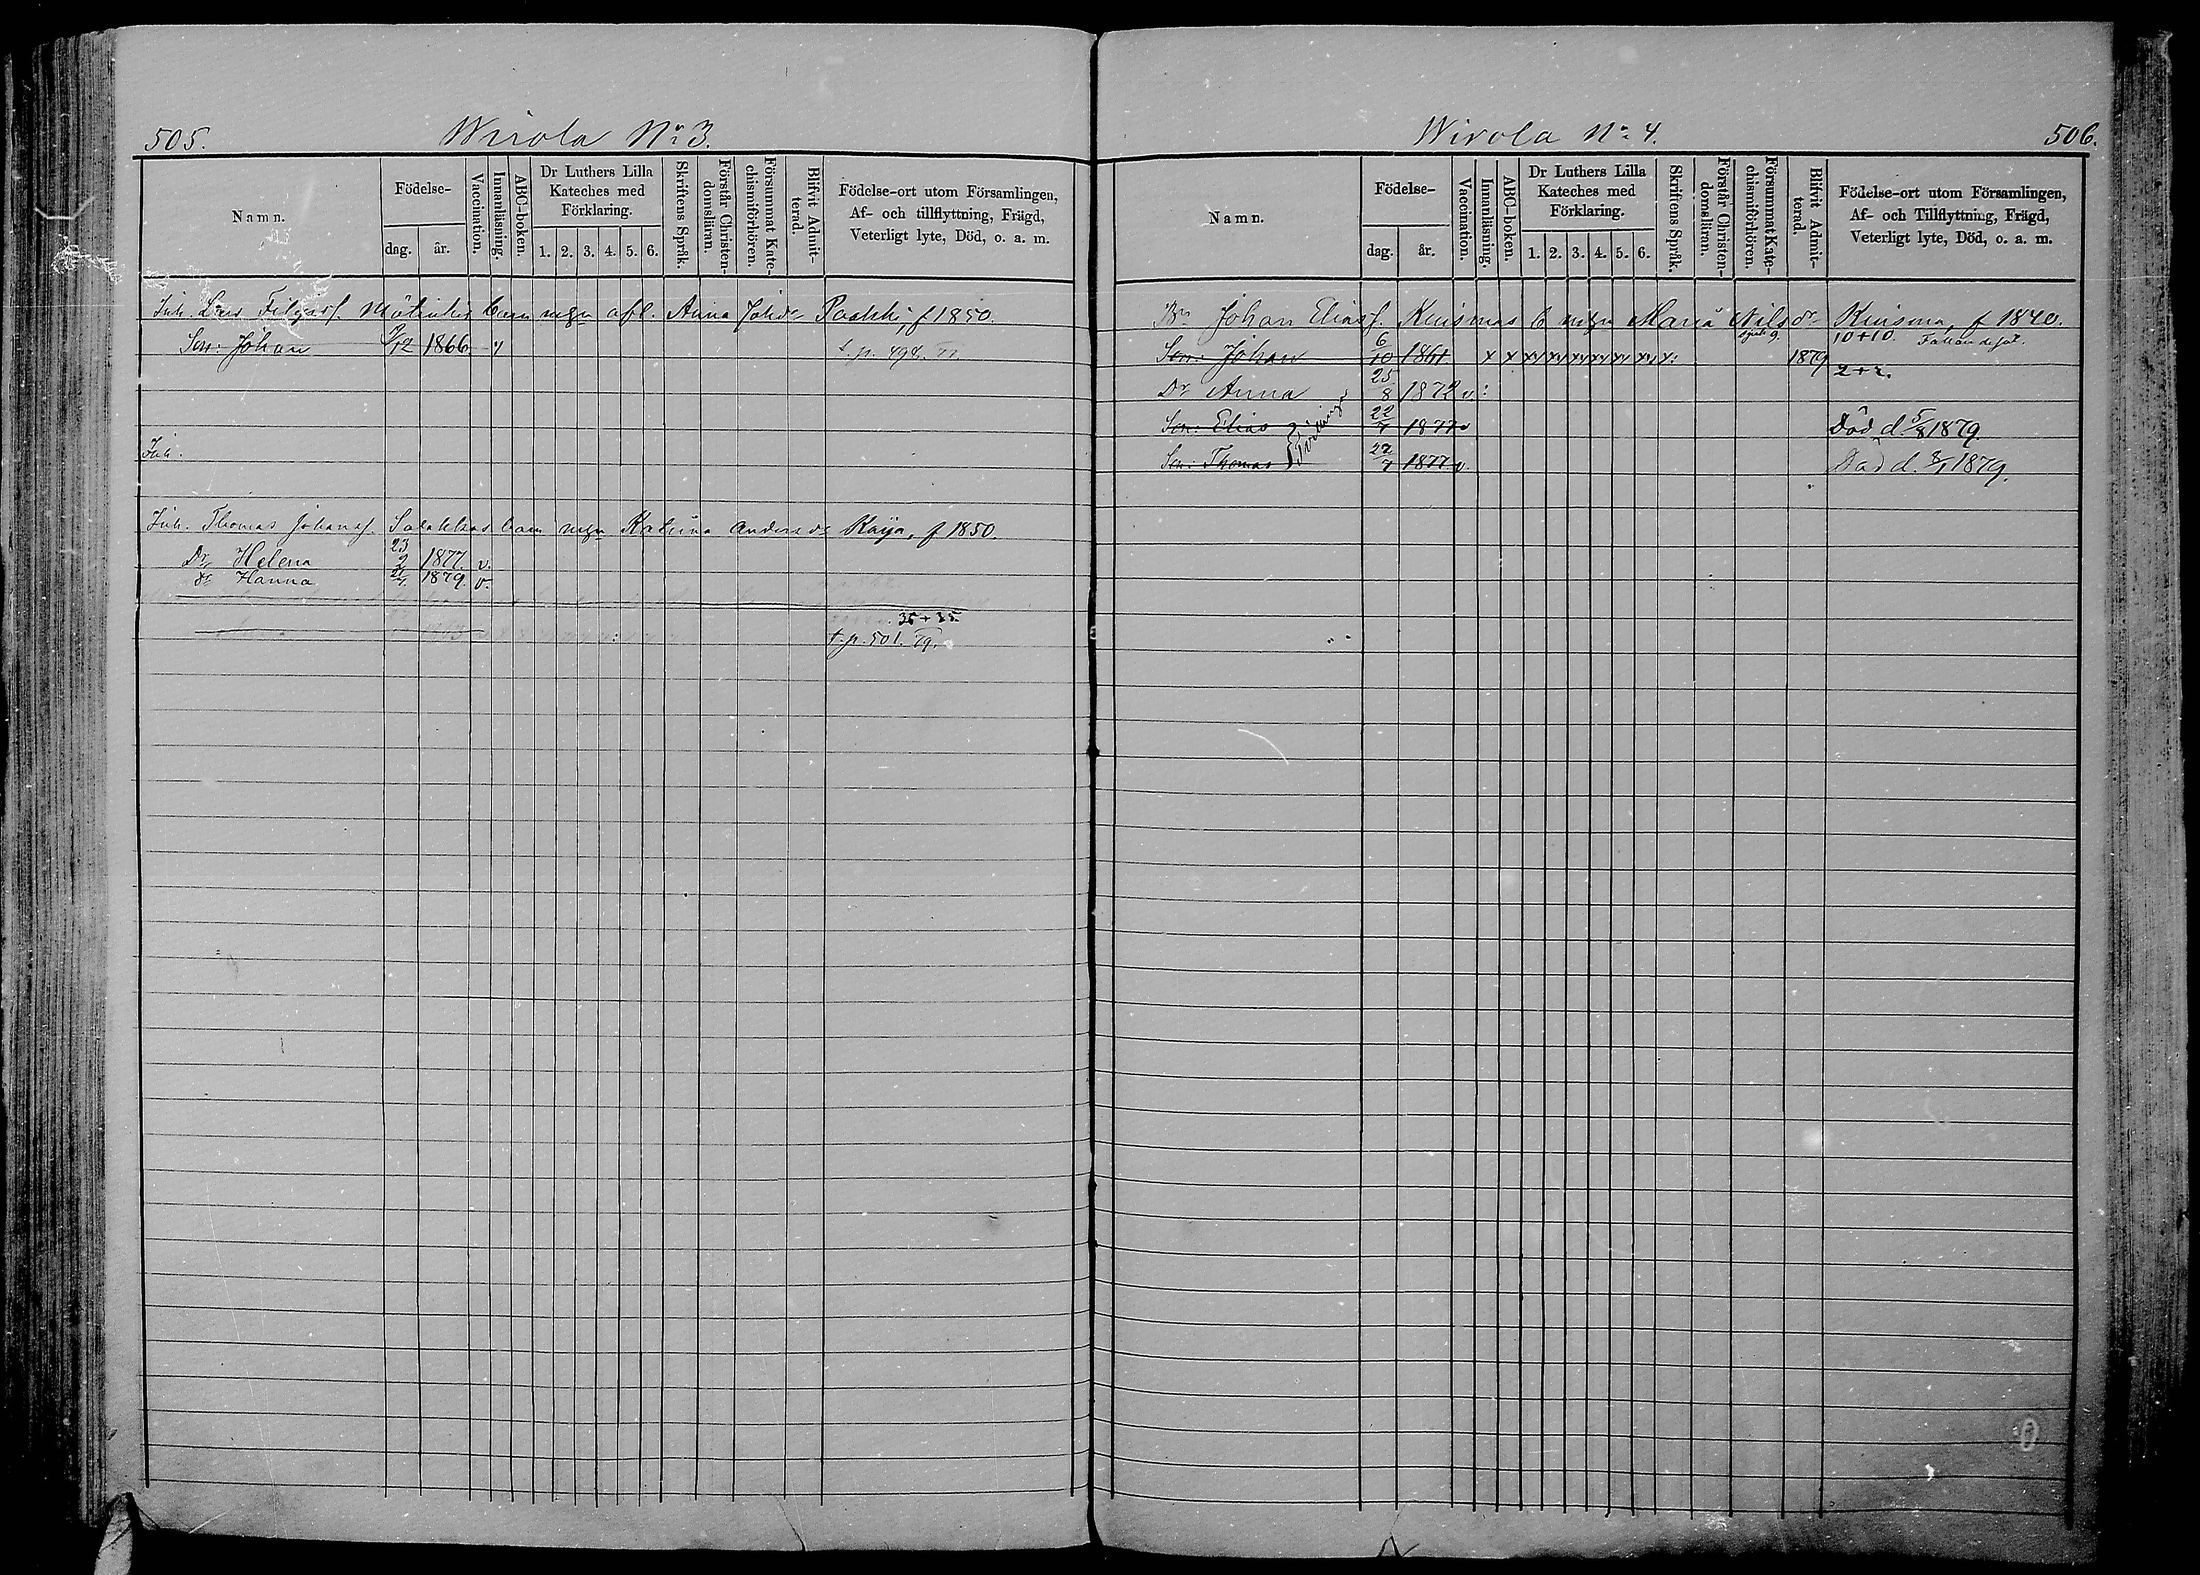 505.
Wirola No 3.
Namn.
Födelse-
dag.
år.
Vaccination.
Innanläsning.
ABC-boken.
Dr Luthers Lilla
Kateches med
Förklaring.
1. 2. 3. 4. 5. 6.
Skriftens Språk.
Förstår Christen-
domsläran.
Försummat Kate-
chismiförhören.
Blifvit Admit-
terad.
Födelse-ort utom Församlingen,
Af- och tillflyttning, Frägd,
Veterligt lyte, Död, o. a. m.
Inh. Lars barn m afl. Anna Johdr Paakki, f 1850.
Son: Johan 12 1866 t. p. 494.
Inh.
Inh. Thomas Johansf. barn m Katrina Andersdr Kaija, f 1850.
Dr Helena 23/2 1877. v.
Dr Hanna 1879. v.
35+35.
t. p. 501. 79.
Wirola No 4.
506.
Namn.
Födelse-
dag.
år.
Vaccination.
Innanläsning.
ABC-boken.
Dr Luthers Lilla
Kateches med
Förklaring.
1. 2. 3. 4. 5. 6.
Skriftens Språk.
Förstår Christen-
domsläran.
Försummat Kate-
chismiförhören.
Blifvit Admit-
terad.
Födelse-ort utom Församlingen,
Af- och Tillflyttning, Frägd,
Veterligt lyte, Död, o. a. m.
Bn Johan Eliasf. Kuismas b m Maria Nilsdr Kuisma, f 1840.
10+10.
Son: Johan 6/10 1861 1879
2+2.
Dr Anna 25/8 1872 v:
Son: Elias 22/7 1877 v Död d. 5/8 1879.
Tvillingar
Son: Thomas 22/7 1877 v. Död d. 8/1 1879.